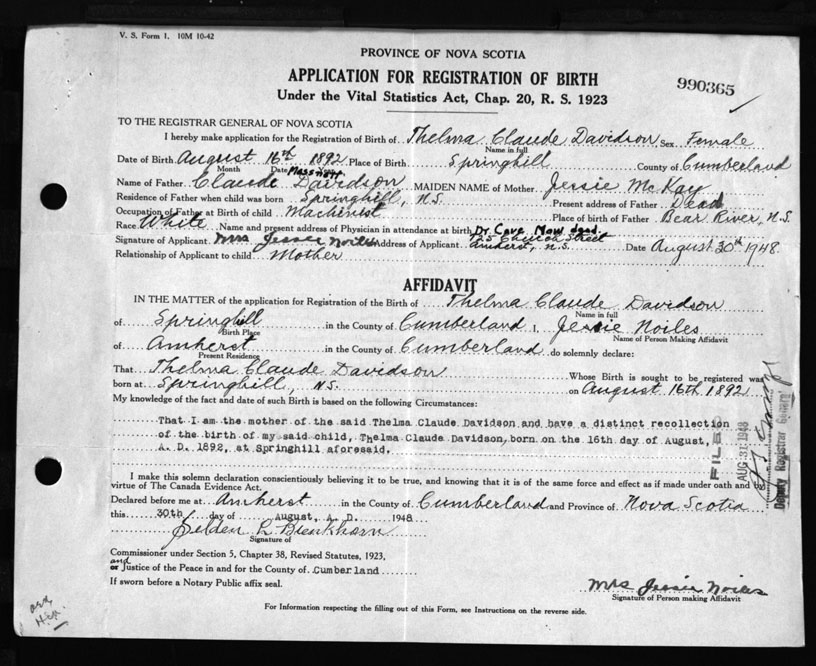 V. S. Form 1. 10M 10-42
PROVINCE OF NOVA SCOTIA
APPLICATION FOR REGISTRATION OF BIRTH
990365
Under the Vital Statistics Act, Chap. 20, R. S. 1923
TO THE REGISTRAR GENERAL OF NOVA SCOTIA
I hereby make application for the Registration of Birth of Thelma Claude Davidson Sex Female
Name in full
Date of Birth August 16th 1892 Place of Birth Springhill County of Cumberland
Month Date
Name of Father Claude Davidson MAIDEN NAME of Mother Jessie McKay
Residence of Father when child was born Springhill, N.S. Present address of Father Dead
Occupation of Father at Birth of child Machinist Place of birth of Father Bear River, N.S.
Race White Name and present address of Physician in attendance at birth Dr Cove Now dead.
Signature of Applicant Mrs Jessie Noiles Address of Applicant 125 Church Street Amherst, N.S. Date August 30th 1948
Relationship of Applicant to child Mother
AFFIDAVIT
IN THE MATTER of the application for Registration of the Birth of Thelma Claude Davidson
Name in full
of Springhill in the County of Cumberland I, Jessie Noiles
Birth Place Name of Person Making Affidavit
of Amherst in the County of Cumberland do solemnly declare:
Present Residence
That Thelma Claude Davidson Whose Birth is sought to be registered was
born at Springhill, N.S. on August 16th 1892
My knowledge of the fact and date of such Birth is based on the following Circumstances:
That I am the mother of the said Thelma Claude Davidson and have a distinct recollection
of the birth of my said child, Thelma Claude Davidson, born on the 16th day of August,
A. D. 1892, at Springhill aforesaid.
FILED
AUG 31 1948
Deputy Registrar General
I make this solemn declaration conscientiously believing it to be true, and knowing that it is of the same force and effect as if made under oath and by
virtue of The Canada Evidence Act.
Declared before me at Amherst in the County of Cumberland and Province of Nova Scotia
this 30th day of August, A. D. 1948
Selden L Blenkhorn
Signature of
Commissioner under Section 5, Chapter 38, Revised Statutes, 1923,
and
or Justice of the Peace in and for the County of Cumberland
If sworn before a Notary Public affix seal.
Mrs Jessie Noiles
Signature of Person making Affidavit
For Information respecting the filling out of this Form, see Instructions on the reverse side.